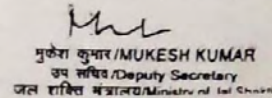 मुकेश कुमार/MUKESH KUMAR
उप सचिव/Deputy Secretary
जल शक्ति मंत्रालय/Ministry of Jal Shakti